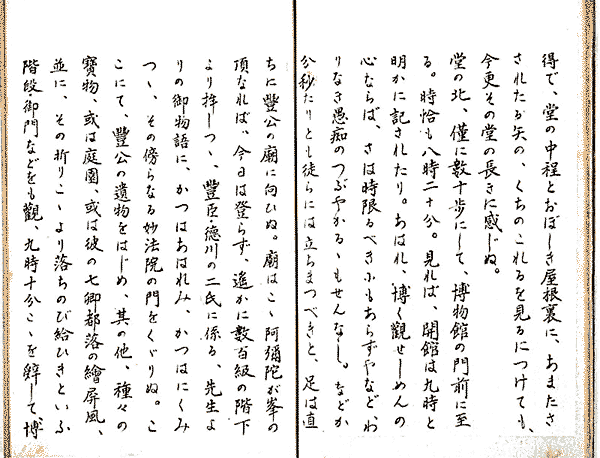 得で、堂の中程とおぼしき屋根裏に、あまたさ
されたる矢の、くちのこれるを見るにつけても、
今更その堂の長きに感じぬ。
堂の北、僅に數十歩にして、博物館の門前に至
る。時恰も八時二十分。見れば、開館は九時と
明かに記されたり。あはれ、博く觀せしめんの
心ならば、さは時限るべきにもあらずやなどわ
りなき愚痴のつぶやかるゝもせんなし。などか
分秒たりとも徒らには立ちまつべきと、足は直
ちに豐公の廟に向ひぬ。廟はこゝ阿彌陀が峯の
頂なれば、今日は登らず、遙かに數百級の階下
より拜しつゝ、豐臣・德川の二氏に係る、先生よ
りの御物語に、かつはあはれみ、かつはにくみ
つゝ、その傍らなる妙法院の門をくゞりぬ。こ
こにて、豐公の遺物をはじめ、其の他、種々の
寳物、或は庭園、或は彼の七卿都落の繪屏風、
並に、その折りこゝより落ちのび給ひきといふ
階段・御門などをも觀、九時十分こゝを辭して、博